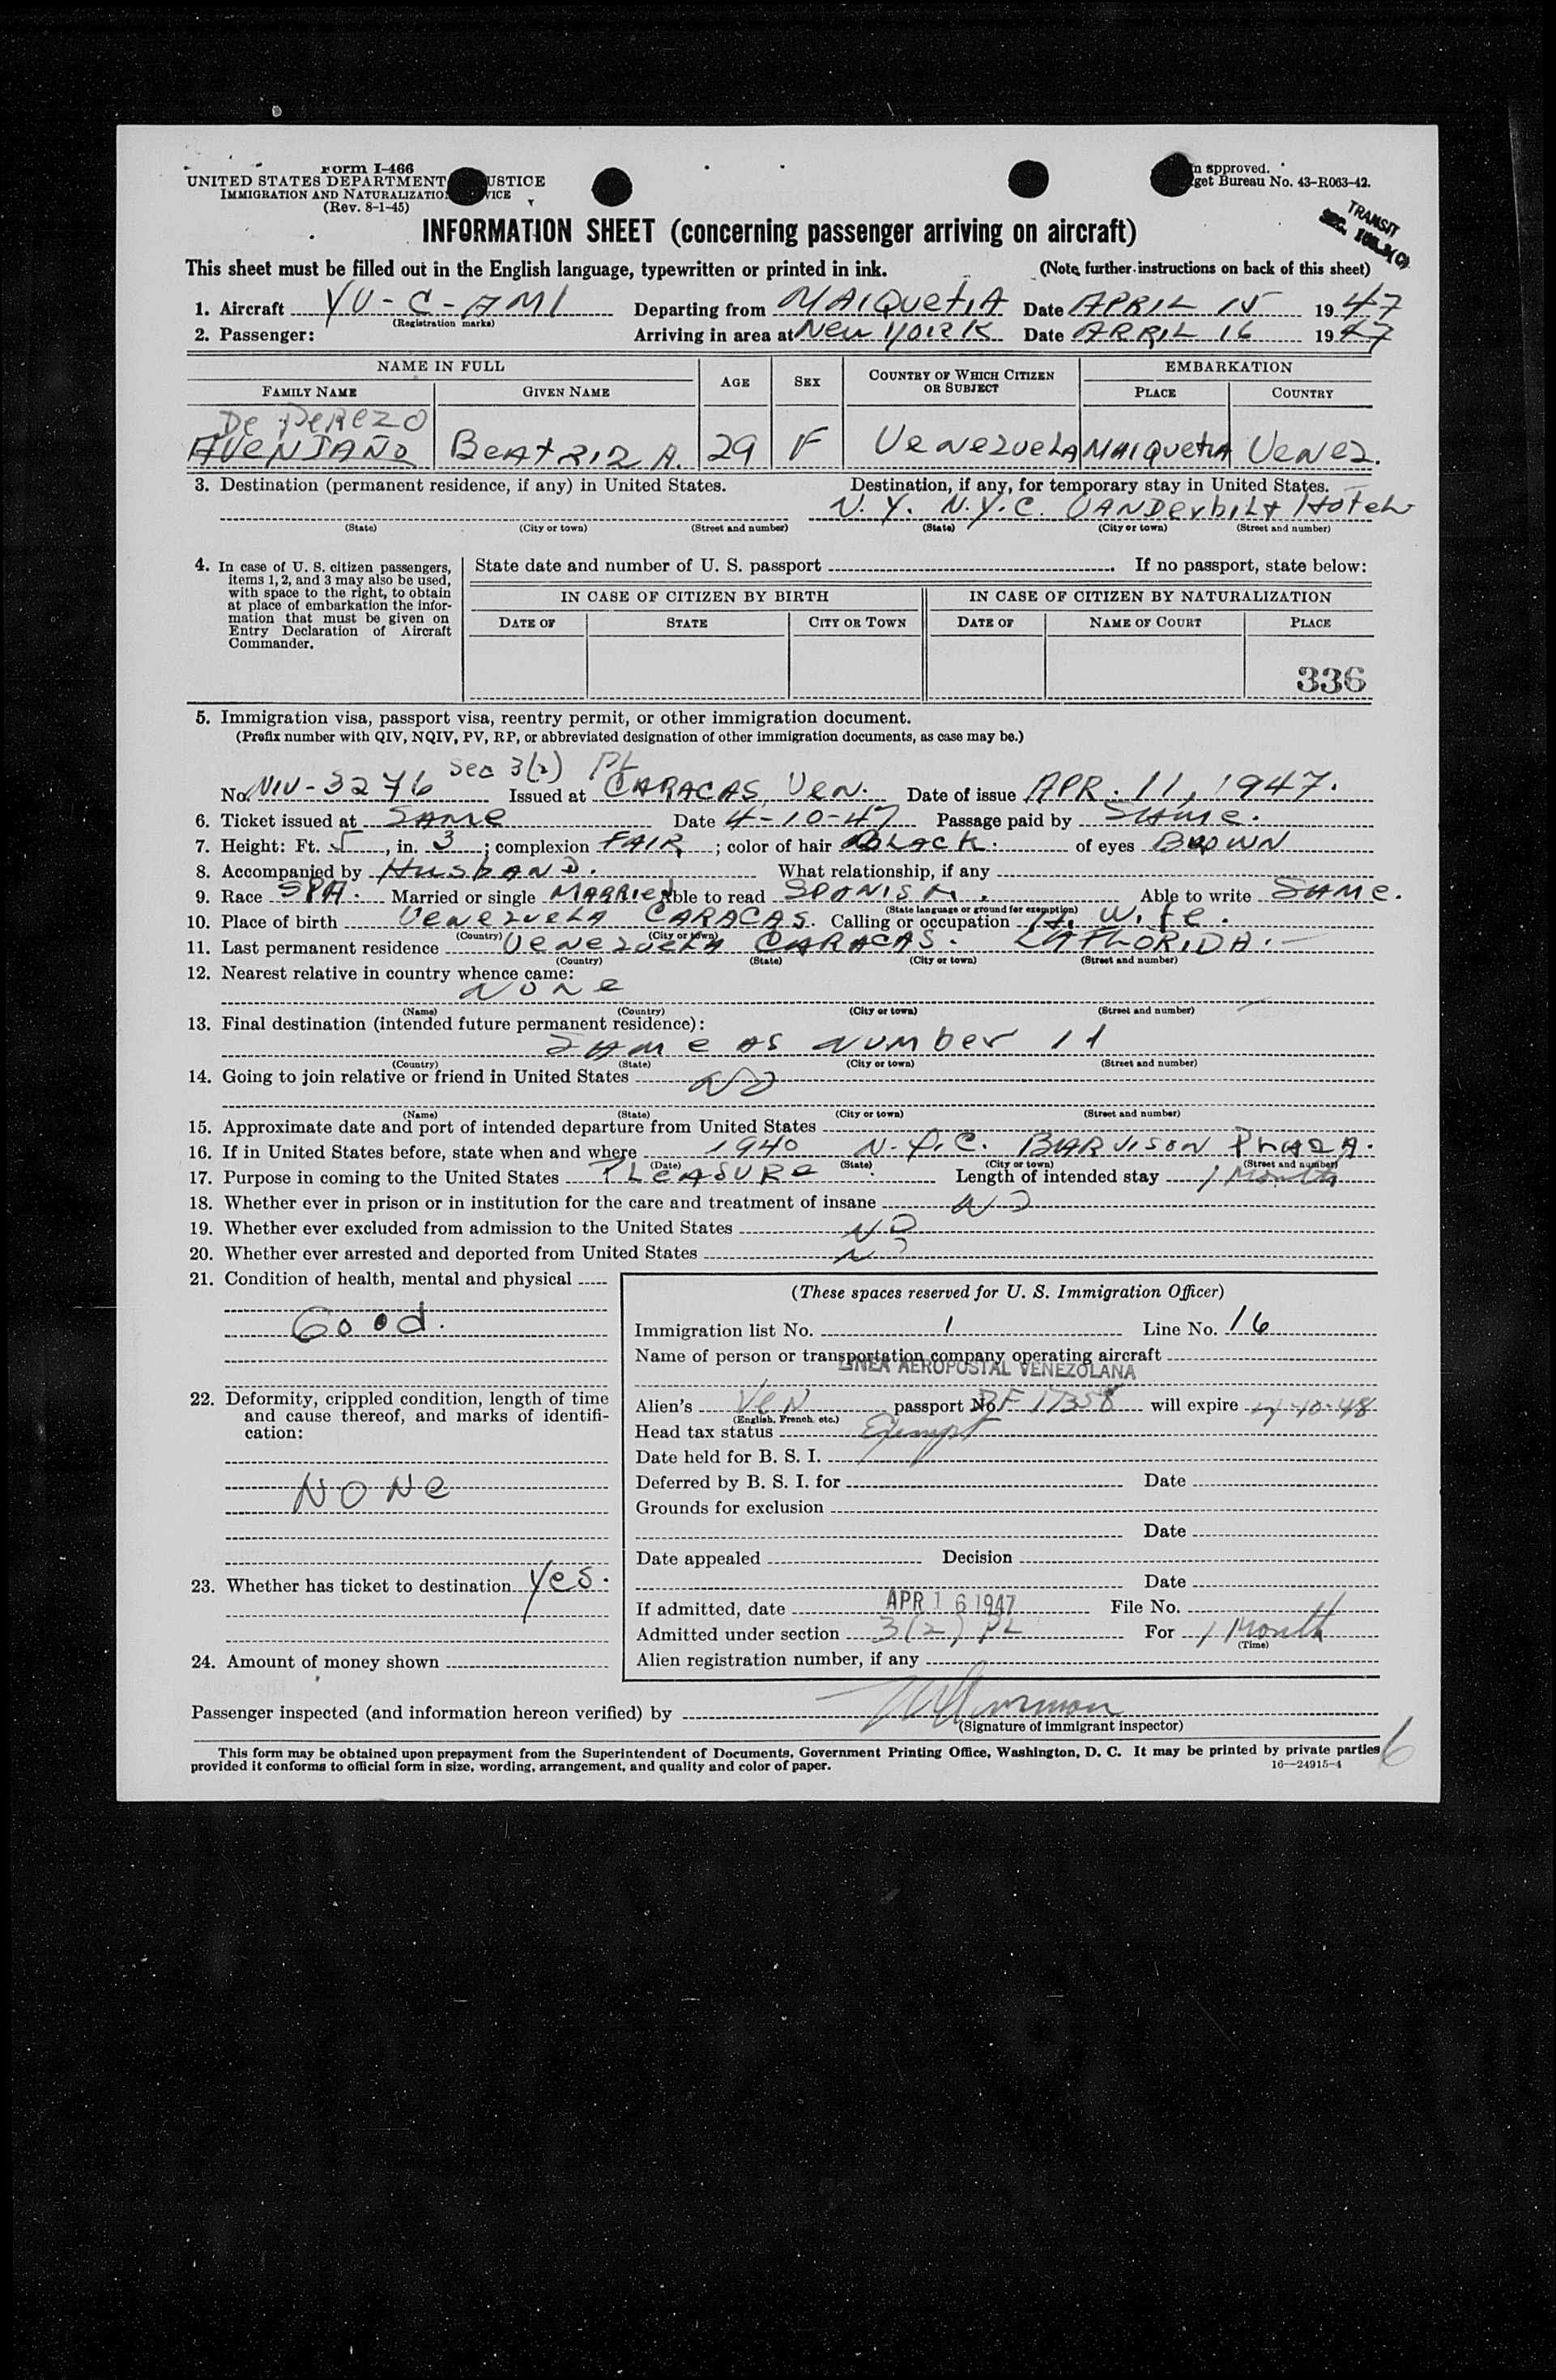 Form I-466
UNITED STATES DEPARTMENT USTICE
IMMIGRATION AND NATURALIZATIO VICE
(Rev. 8-1-45)
n approved.
get Bureau No. 43-R063-42.
TRANSIT
SEC.
INFORMATION SHEET (concerning passenger arriving on aircraft)
This sheet must be filled out in the English language, typewritten or printed in ink. (Note further instructions on back of this sheet)
1. Aircraft YV-C-AMI Departing from MAIQUetIA Date APRIL 15 1947
(Registration marks)
2. Passenger: Arriving in area at New YORK Date APRIL 16 1947
NAME IN FULL AGE SEX COUNTRY OF WHICH CITIZEN OR SUBJECT EMBARKATION
FAMILY NAME GIVEN NAME PLACE COUNTRY
De PeRezO
AVeNDAÑO BeAtRIZ A. 29 F VeNezueLA MAIQuetIA VeNez.
3. Destination (permanent residence, if any) in United States. Destination, if any, for temporary stay in United States.
N.Y. N.Y.C. VANDerbiLt HoteL
(State) (City or town) (Street and number) (State) (City or town) (Street and number)
4. In case of U. S. citizen passengers, items 1, 2, and 3 may also be used, with space to the right, to obtain at place of embarkation the information that must be given on Entry Declaration of Aircraft Commander.
State date and number of U. S. passport If no passport, state below:
IN CASE OF CITIZEN BY BIRTH IN CASE OF CITIZEN BY NATURALIZATION
DATE OF STATE CITY OR TOWN DATE OF NAME OF COURT PLACE
336
5. Immigration visa, passport visa, reentry permit, or other immigration document.
(Prefix number with QIV, NQIV, PV, RP, or abbreviated designation of other immigration documents, as case may be.)
Sec 3(2) PL
No. NIV-3276 Issued at CARACAS, VeN. Date of issue APR. 11, 1947.
6. Ticket issued at SAMe Date 4-10-47 Passage paid by SAMe.
7. Height: Ft. 5, in. 3; complexion FAIR; color of hair BLACK. of eyes BROWN
8. Accompanied by HusbAND. What relationship, if any
9. Race SPA. Married or single MARRIeD Able to read SPANISH. Able to write SAMe.
(State language or ground for exemption)
10. Place of birth VeNezueLA CARACAS. Calling or occupation H. wife.
(Country) (City or town)
11. Last permanent residence VeNezueLA CARACAS. LA FLORIDA.
(Country) (State) (City or town) (Street and number)
12. Nearest relative in country whence came:
NoNe
(Name) (Country) (City or town) (Street and number)
13. Final destination (intended future permanent residence):
SAMe AS NuMber 11
(Country) (State) (City or town) (Street and number)
14. Going to join relative or friend in United States NO
(Name) (State) (City or town) (Street and number)
15. Approximate date and port of intended departure from United States
16. If in United States before, state when and where 1940 N.Y.C. BARVISON PLAZA.
(Date) (State) (City or town) (Street and number)
17. Purpose in coming to the United States PLeASURe. Length of intended stay 1 Month
18. Whether ever in prison or in institution for the care and treatment of insane NO
19. Whether ever excluded from admission to the United States NO
20. Whether ever arrested and deported from United States NO
21. Condition of health, mental and physical
Good.
22. Deformity, crippled condition, length of time and cause thereof, and marks of identification:
NoNe
23. Whether has ticket to destination Yes.
24. Amount of money shown
(These spaces reserved for U. S. Immigration Officer)
Immigration list No. 1 Line No. 16
Name of person or transportation company operating aircraft
LINEA AEROPOSTAL VENEZOLANA
Alien's VeN passport No. DF 17358 will expire 4-10-48
(English, French, etc.)
Head tax status Exempt
Date held for B. S. I.
Deferred by B. S. I. for Date
Grounds for exclusion
Date
Date appealed Decision
Date
If admitted, date APR 16 1947 File No.
Admitted under section 3(2) PL For 1 Month
(Time)
Alien registration number, if any
Passenger inspected (and information hereon verified) by
(Signature of immigrant inspector)
This form may be obtained upon prepayment from the Superintendent of Documents, Government Printing Office, Washington, D. C. It may be printed by private parties
provided it conforms to official form in size, wording, arrangement, and quality and color of paper. 16—24915-4
6